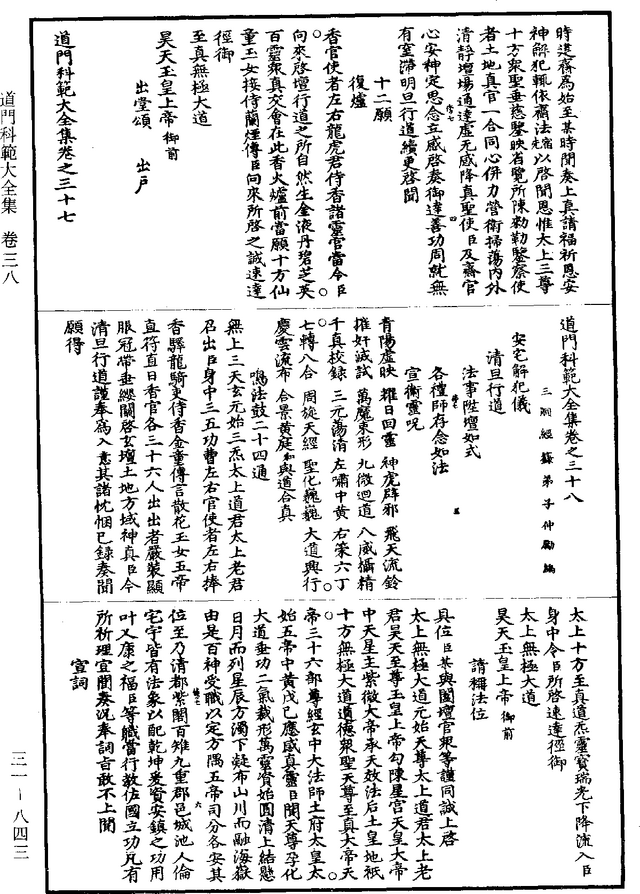 時建齋為始至某時閒奏上真請福祈恩安
神解犯輒依齋法先端以啓聞恩惟太上三尊
十方衆聖垂慈鑒映省覽所陳勑勒鑒察使
者土地真官一合同心併力營衛掃蕩内外
清靜壇塲通達虛无感降真聖使臣及齋官
心安神定思念立感啓奏御達善功周就無
有窒滯明旦行道續更啓聞
十二願
復爐
香官使者左右龍虎君侍香諸靈官當令臣
向來啓壇行道之所自然生金液丹碧芝英
百靈衆真交會在此香火爐前當願十方仙
童玉女接侍蘭煙傳臣向來所啓之誠速達
徑御
至真無極大道
昊天玉皇上帝御前
出堂頌　出户
道門科範大全集卷之三十七
道門科範大全集　卷三八
道門科範大全集卷之三十八
三洞經籙弟子仲勵編
安宅解犯儀
清旦行道
法事陞壇如式
各禮師存念如法
宣衛靈呪
青陽虛映　耀日回靈　神虎辟邪　飛天流鈴
摧奸滅試　萬魔束形　九微迴道　八威攝精
千真校錄　三元蕩清　左嘯中黄　右策六丁
七轉八合　周旋天經　聖化巍巍　大道興行
慶雲流布　合景黄庭　和與道合真
鳴法鼓二十四通
無上三天玄元始三炁太上道君太上老君
召出臣身中三五功曹左右官使者左右捧
香驛龍騎吏侍香金童傳言散花玉女五帝
直符直日香官各三十六人出出者嚴裝顯
服冠帶垂纓關啓玄壇土地方域神真臣今
清旦行道謹奉為入意其諸忱悃已錄奏聞
願得
太上十方至真道炁靈寶瑞光下降流入臣
身中令臣所啓速達徑御
太上無極大道
昊天玉皇上帝御前
請稱法位
具位臣某與闔壇官衆等謹同誠上啓
太上無極大道元始天尊太上道君太上老
君昊天至尊玉皇上帝勾陳星宫天皇大帝
中天星主紫微大帝承天效法后土皇地祇
十方無極大道道德衆聖天尊至真大帝天
帝三十六部尊經玄中大法師土府太皇太
始五帝中黄戊己應感真靈臣聞天尊孕化
大道垂功二氣裁形萬靈資始圓清上結懸
日月而列星辰方濁下凝布山川而融海嶽
由是百神受職以定方隅五帝司分各安其
位至乃清都紫闕百雉九重郡邑城池人倫
宅宇皆有法象以配乾坤爰資安鎮之功用
叶乂康之福臣等職當行教位國立功凡有
所祈理宜聞奏況奉詞旨敢不上聞
宣詞
三一—八四三